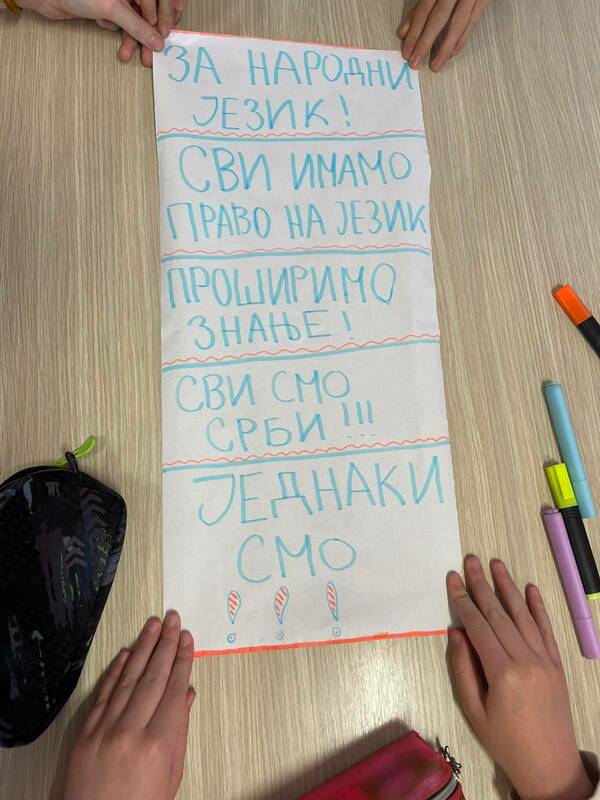 ЗА НАРОДНИ
ЈЕЗИК!
СВИ ИМАМО
ПРАВО НА ЈЕЗИК
ПРОШИРИМО
ЗНАЊЕ!
СВИ СМО
СРБИ!!!
ЈЕДНАКИ
СМО
!!!